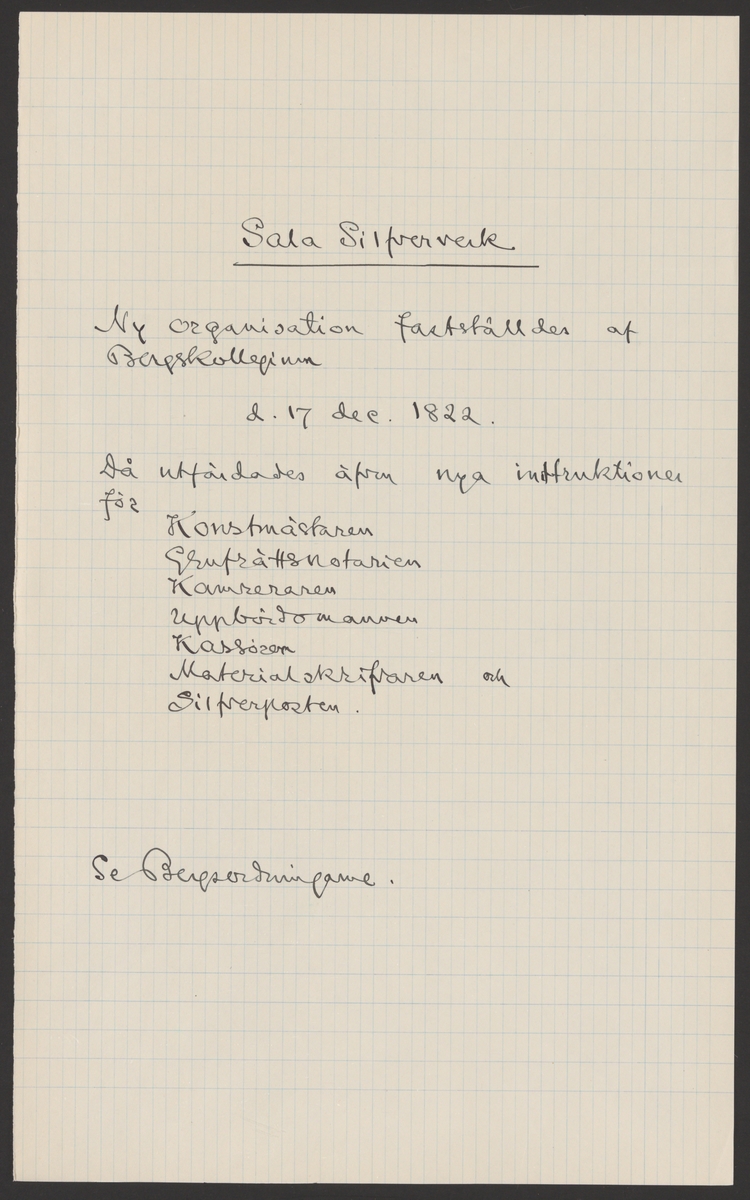 Sala Silfververk
Ny organisation fastställdes af
Bergskollegium
d. 17 dec. 1822.
Då utfärdades äfven nya instruktioner
för
Konstmästaren
Grufrättsnotarien
Kamreraren
Uppbördsmannen
Kassören
Materialskrifvaren och
Silfverposten.
Se Bergsordningarne.